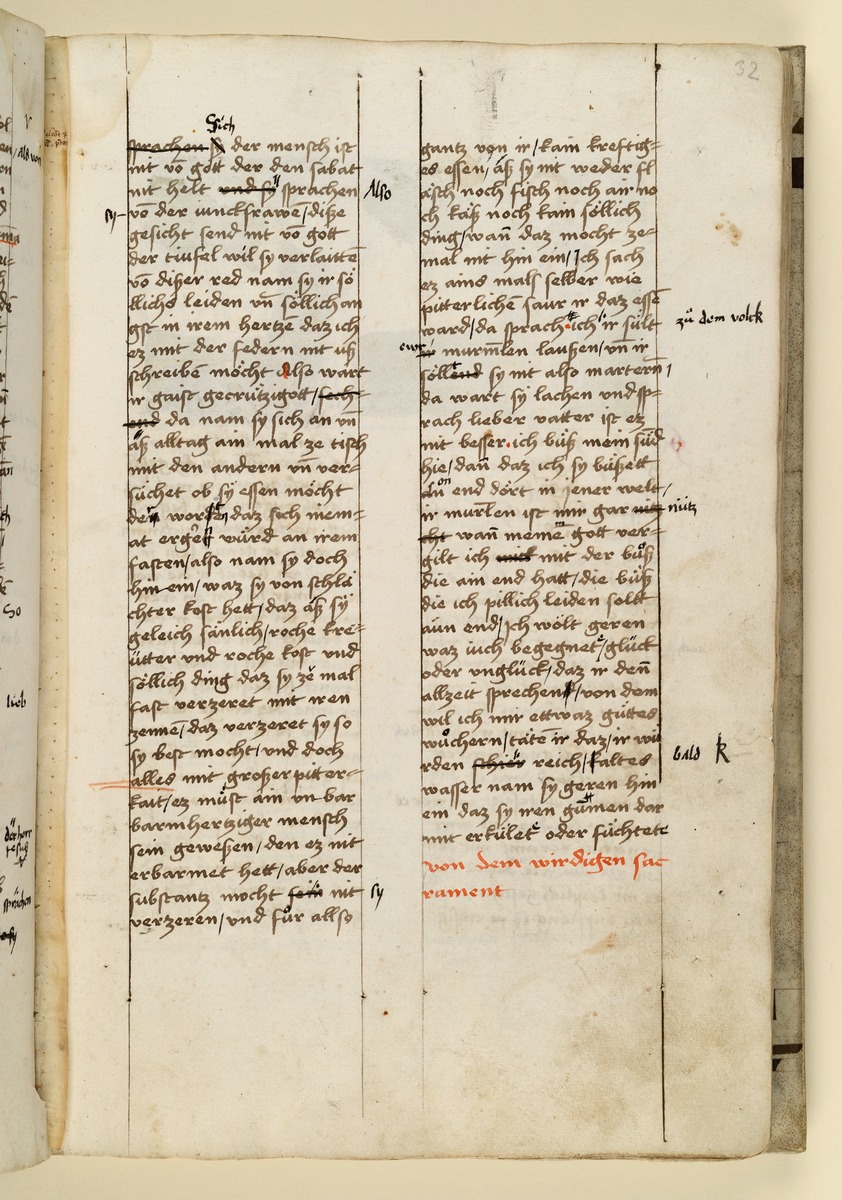 32
Sich
sprachen sy der mensch ist
nit vō gott der den sabat
nit helt und sy sprachen
Also
sy
vō der iunckfrawē / diße
gesicht send nit vō gott
der tiufel wil sy verlaittē
vō dißer red nam sy ir sö
llichs leiden vn̄ söllich an
gst in irem hertzē daz ich
ez mit der federn nit uß
schreibē möcht Also wart
ir gaist gecrützigott / sech=
end da nam sy sich an vn̄
äß alltag ain mal ze tisch
mit den andern vn̄ ver=
süchet ob sy essen möcht
daz sich niem=
at würd an irem
fasten / also nam sy doch
hin ein / waz sy von schlä
chter kost hett / daz äß sy
geleich sänlich / roche kre=
ütter vnd roche kost vnd
söllich ding daz sy ze mal
fast verzeret mit iren
zennē / daz verzeret sy so
sy best mocht / vnd doch
alles mit großer pitter=
kait / ez müst ain vn bar
barmhertziger mensch
sein geweßen / den ez nit
erbarmet hett / aber der
substantz mocht sein nit
sy
verzeren / vnd für allso
gantz von ir / kain kreftig=
es essen / äß sy nit weder fl
äisch noch fisch noch air no
ch käß noch kain söllich
ding / wan̄ daz mocht ze=
mal nit hin ein / Ich sach
ez ains mals selber wie
pitterlichē saur ir daz essē
ward / da sprach ich ir sült
zü dem volck
ewr
ir murmlen laußen / vn̄ ir
söllend sy nit also martern̄
da wart sy lachen vnd sp=
rach lieber vatter ist ez
nit besser ich büß mein sünd
hie / dan̄ daz ich sy büßett
on
än end dört in jener welt /
ir murlen ist mir gar nitz
nütz
cht wan̄ meinē gott ver=
gilt ich mich mit der büß
die ain end hatt / die büß
die ich pillich leiden sollt
äun end / Ich wölt geren
waz iuch begegnet / glück
oder vnglück / daz ir den̄
allzeit sprechen / von dem
wil ich mir ettwaz güttes
wüchern / täte ir daz / ir wü
rden schier reich / kaltes
bald k
wasser nam sy geren hin
ein daz sy iren gümen dar
mit erkület oder füchtete
von dem wirdigen sac
rament